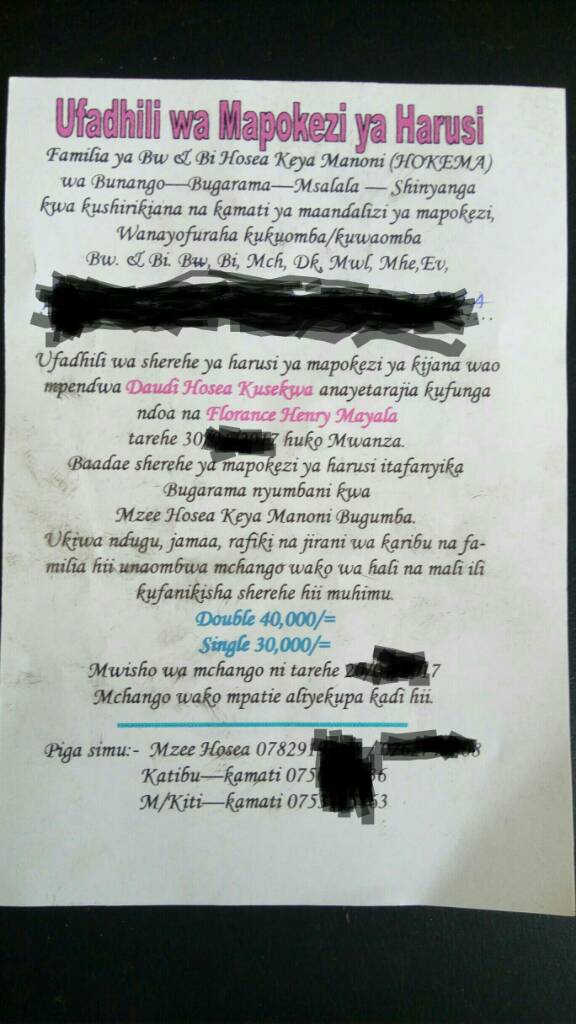 Ufadhili wa Mapokezi ya Harusi
Familia ya Bw & Bi Hosea Keya Manoni (HOKEMA)
wa Bunango—Bugarama—Msalala — Shinyanga
kwa kushirikiana na kamati ya maandalizi ya mapokezi,
Wanayofuraha kukuomba/kuwaomba
Bw. & Bi. Bw, Bi, Mch, Dk, Mwl, Mhe,Ev,
Ufadhili wa sherehe ya harusi ya mapokezi ya kijana wao
mpendwa Daudi Hosea Kusekwa anayetarajia kufunga
ndoa na Florance Henry Mayala
tarehe 30 7 huko Mwanza.
Baadae sherehe ya mapokezi ya harusi itafanyika
Bugarama nyumbani kwa
Mzee Hosea Keya Manoni Bugumba.
Ukiwa ndugu, jamaa, rafiki na jirani wa karibu na fa-
milia hii unaombwa mchango wako wa hali na mali ili
kufanikisha sherehe hii muhimu.
Double 40,000/=
Single 30,000/=
Mwisho wa mchango ni tarehe 17
Mchango wako mpatie aliyekupa kadi hii.
Piga simu:- Mzee Hosea 07829
Katibu—kamati 075
M/Kiti—kamati 075